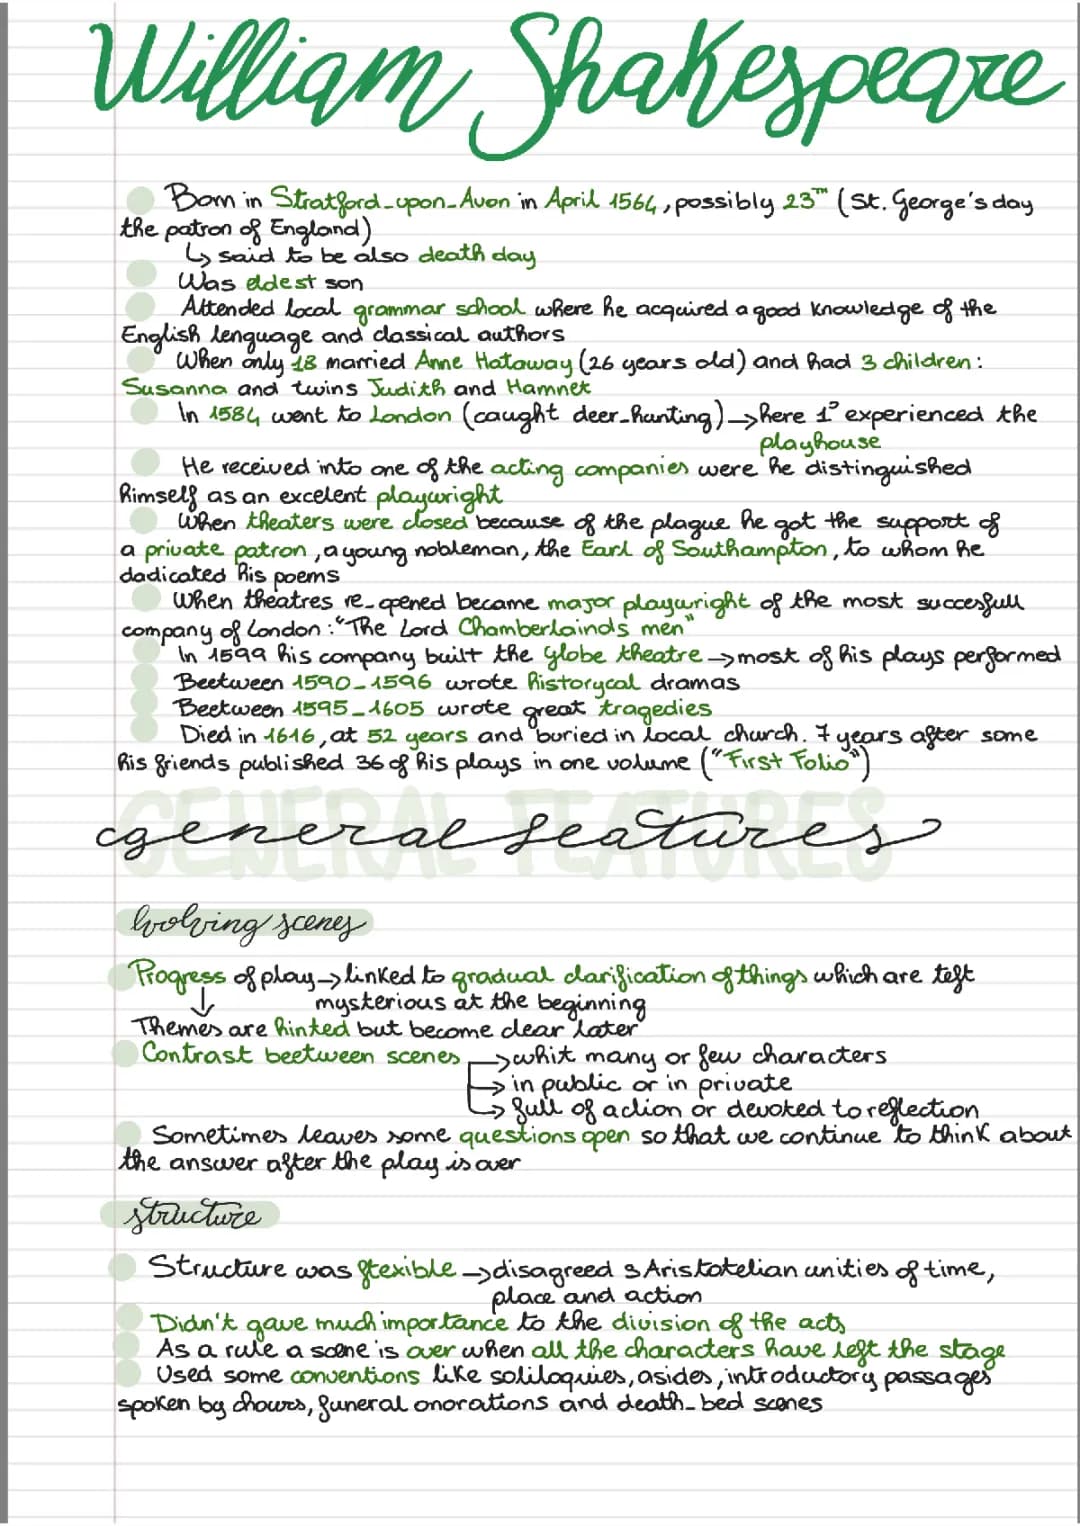 William Shakespeare
Born in Stratford-upon-Avon in April 1564, possibly 23™ (St. George's day
the patron of England)
↳ said to be also death day
Was eldest son
Attended local grammar school where he acquired a good knowledge of the
English lenguage and classical authors
When only 18 married Anne Hataway (26 years old) and had 3 children:
Susanna and twins Judith and Hamnet
In 1584 went to London (caught deer-hunting) → here 1° experienced the
playhouse
He received into one of the acting companies were he distinguished
himself as an excelent playwright
When theaters were closed because of the plague he got the support of
a private patron, a young nobleman, the Earl of Southampton, to whom he
dadicated his poems
When theatres re-opened became major playwright of the most succesfull
company of London: "The Lord Chamberlainds men"
In 1599 his company built the Globe theatre → most of his plays performed
Beetween 1590-1596 wrote historycal dramas
Beetween 1595-1605 wrote great tragedies
Died in 1616, at 52 years and buried in local church. 7 years after some
his friends published 36 of his plays in one volume ("First Folio")
GENERAL FEATURES
general features
Evolving scenes
Progress of play → linked to gradual clarification of things which are left
mysterious at the beginning
↓
Themes are hinted but become clear later
Contrast beetween scenes → whit many or few characters
→ in public or in private
→ full of action or devoted to reflection
Sometimes leaves some questions open so that we continue to think about
the answer after the play is over
structure
Structure was flexible → disagreed 3 Aristotelian unities of time,
place and action
Didn't gave much importance to the division of the acts
As a rule a scene is over when all the characters have left the stage
Used some conventions like soliloquies, asides, introductory passages
spoken by chours, funeral onorations and death-bed scenes